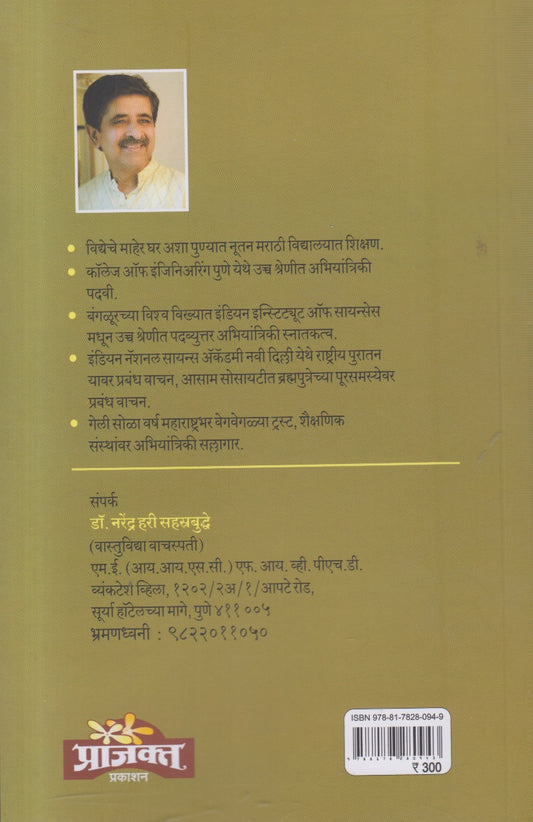 विद्येचे माहेर घर अशा पुण्यात नूतन मराठी विद्यालयात शिक्षण.
कॉलेज ऑफ इंजिनिअरिंग पुणे येथे उच्च श्रेणीत अभियांत्रिकी
पदवी.
बंगळूरच्या विश्व विख्यात इंडियन इन्स्टिट्यूट ऑफ सायन्सेस
मधून उच्च श्रेणीत पदव्युत्तर अभियांत्रिकी स्नातकत्व.
इंडियन नॅशनल सायन्स ॲकॅडमी नवी दिल्ली येथे राष्ट्रीय पुरातन
यावर प्रबंध वाचन, आसाम सोसायटीत ब्रह्मपुत्रेच्या पूरसमस्येवर
प्रबंध वाचन.
गेली सोळा वर्ष महाराष्ट्रभर वेगवेगळ्या ट्रस्ट, शैक्षणिक
संस्थांवर अभियांत्रिकी सल्लागार.
संपर्क
डॉ. नरेंद्र हरी सहस्रबुद्धे
(वास्तुविद्या वाचस्पती)
एम.ई. (आय.आय.एस.सी.) एफ. आय. व्ही. पीएच.डी.
व्यंकटेश व्हिला, १२०२/२अ/१/आपटे रोड,
सूर्या हॉटेलच्या मागे, पुणे ४११ ००५
भ्रमणध्वनी : ९८२२०११०५०
प्राजक्त
प्रकाशन
ISBN 978-81-7828-094-9
₹ 300